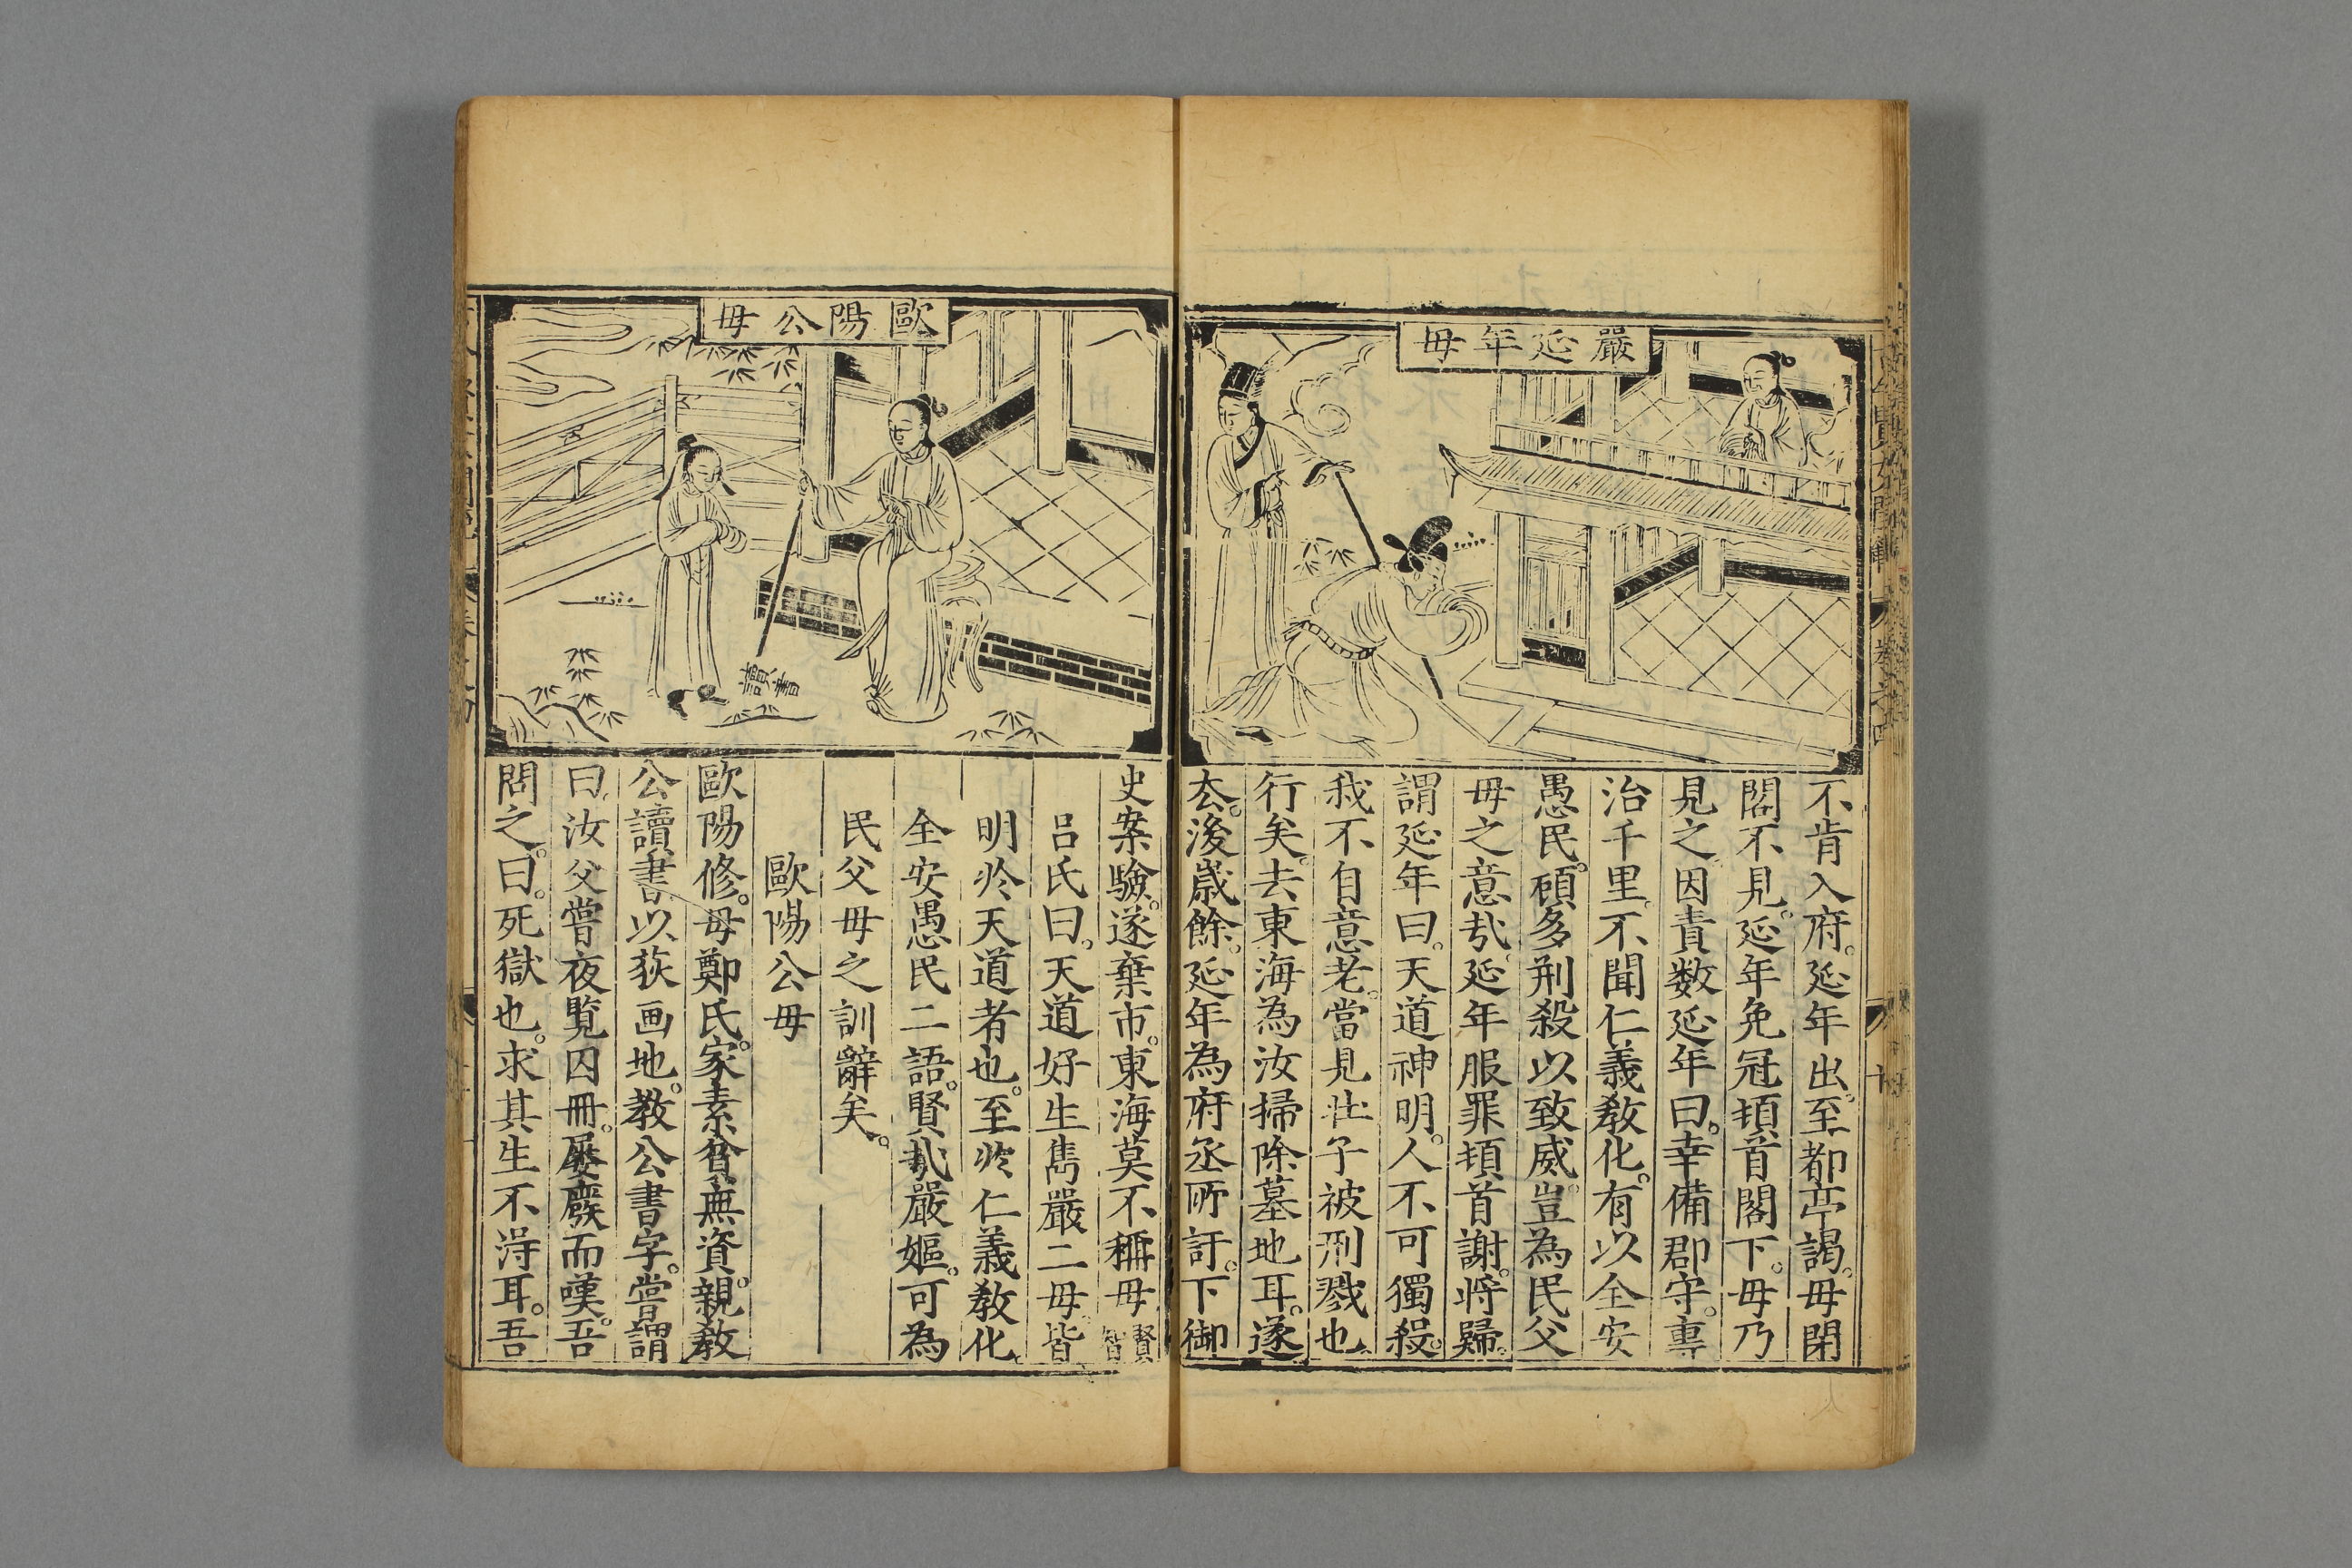 嚴延年母
不肯入府。延年出。至都亭謁。母閉
閣不見。延年免冠頓首閣下。母乃
見之。因責数延年曰。幸備郡守。專
治千里。不聞仁義教化。有以全安
愚民。顧多刑殺以致威。豈為民父
母之意㢤。延年服罪頓首謝。將歸。
謂延年曰。天道神明。人不可獨殺。
我不自意老。當見壯子被刑戮也。
行矣。去東海為汝掃除墓地耳。遂
去。後歲餘。延年為府丞所訐。下御
歐陽公母
讀書
史案驗。遂棄市。東海莫不稱母賢智
呂氏曰。天道好生。雋嚴二母。皆
明於天道者也。至於仁義教化。
全安愚民二語。賢㢤嚴嫗。可為
民父母之訓辭矣。
歐陽公母
歐陽修。母鄭氏。家素貧。無資。親教
公讀書。以荻画地。教公書字。嘗謂
曰。汝父嘗夜覧囚冊。屢廢而嘆。吾
問之。曰。死獄也。求其生不淂耳。吾